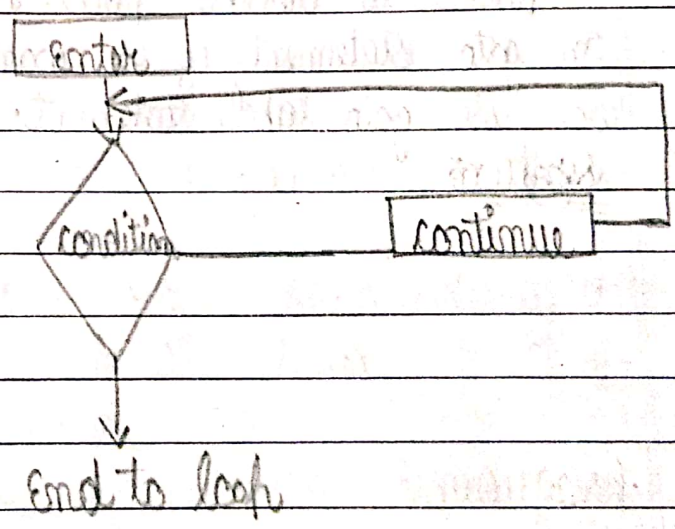 Enter
condition
continue
End to loop